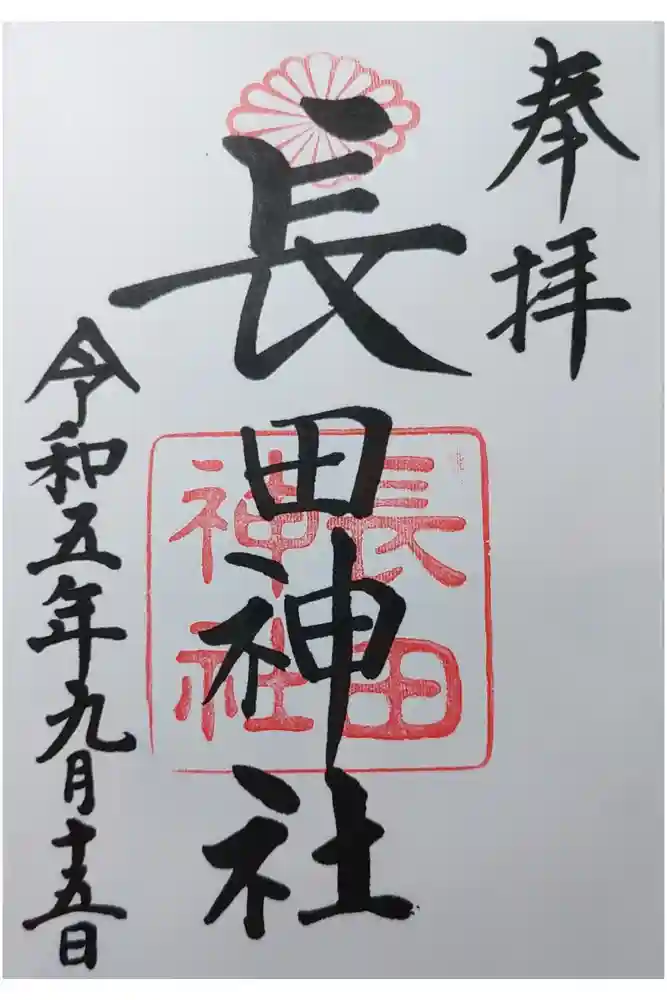 奉拝
長田神社
長田
神社
令和五年九月十五日